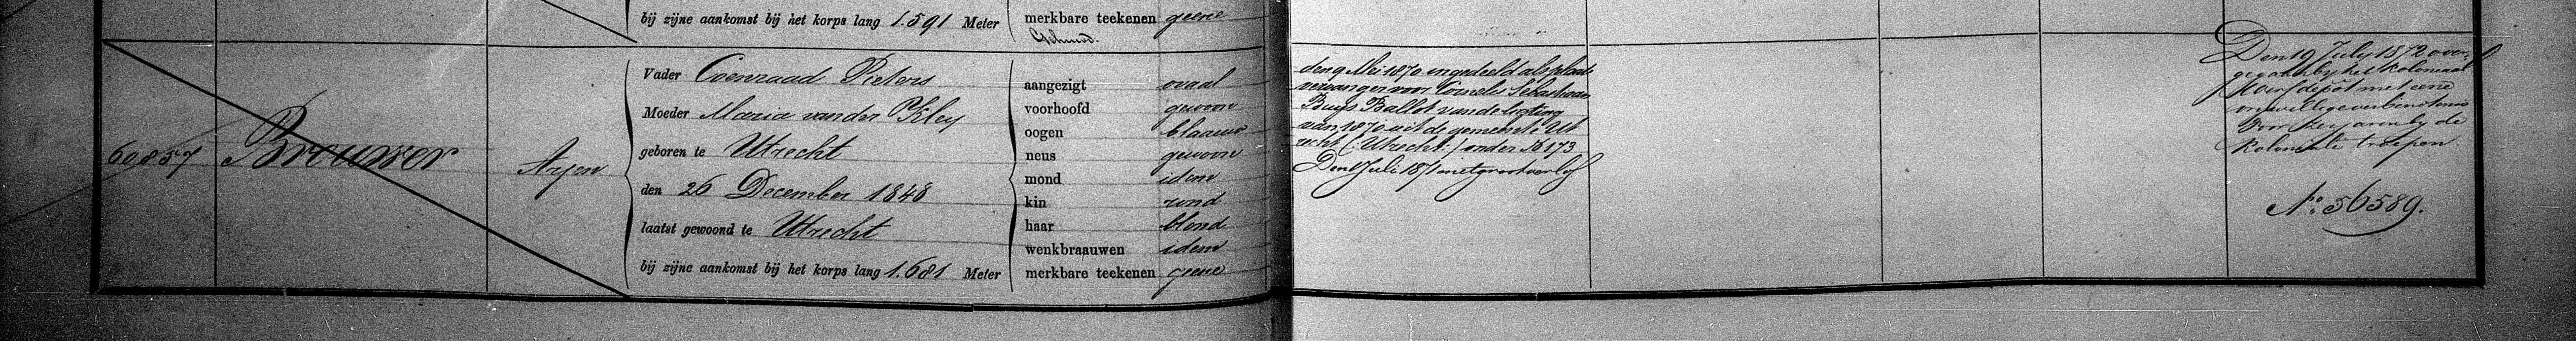 bij zijne aankomst bij het korps lang 1.591 Meter
merkbare teekenen geene
60857 Brouwer Arjen
Vader Coenraad Pieters
Moeder Maria van der Kley
geboren te Utrecht
den 26 December 1848
laatst gewoond te Utrecht
bij zijne aankomst bij het korps lang 1.681 Meter
aangezigt ovaal
voorhoofd gewoon
oogen blaauw
neus gewoon
mond idem
kin rond
haar blond
wenkbraauwen idem
merkbare teekenen geene
den 9 Mei 1870 ingedeeld als plaats
vervanger voor Cornelis Sebastiaan
Buys Ballot van de ligting
van 1870 uit de gemeente Ut
recht (Utrecht) onder No 173
Den Juli 1871 met groot verlof
Den 19 July 1872 over
gegaan by het koloniaal
Werfdepôt met eene
vrywillige verbindtenis
voor zes jaren by de
koloniale troepen
No. 56589.